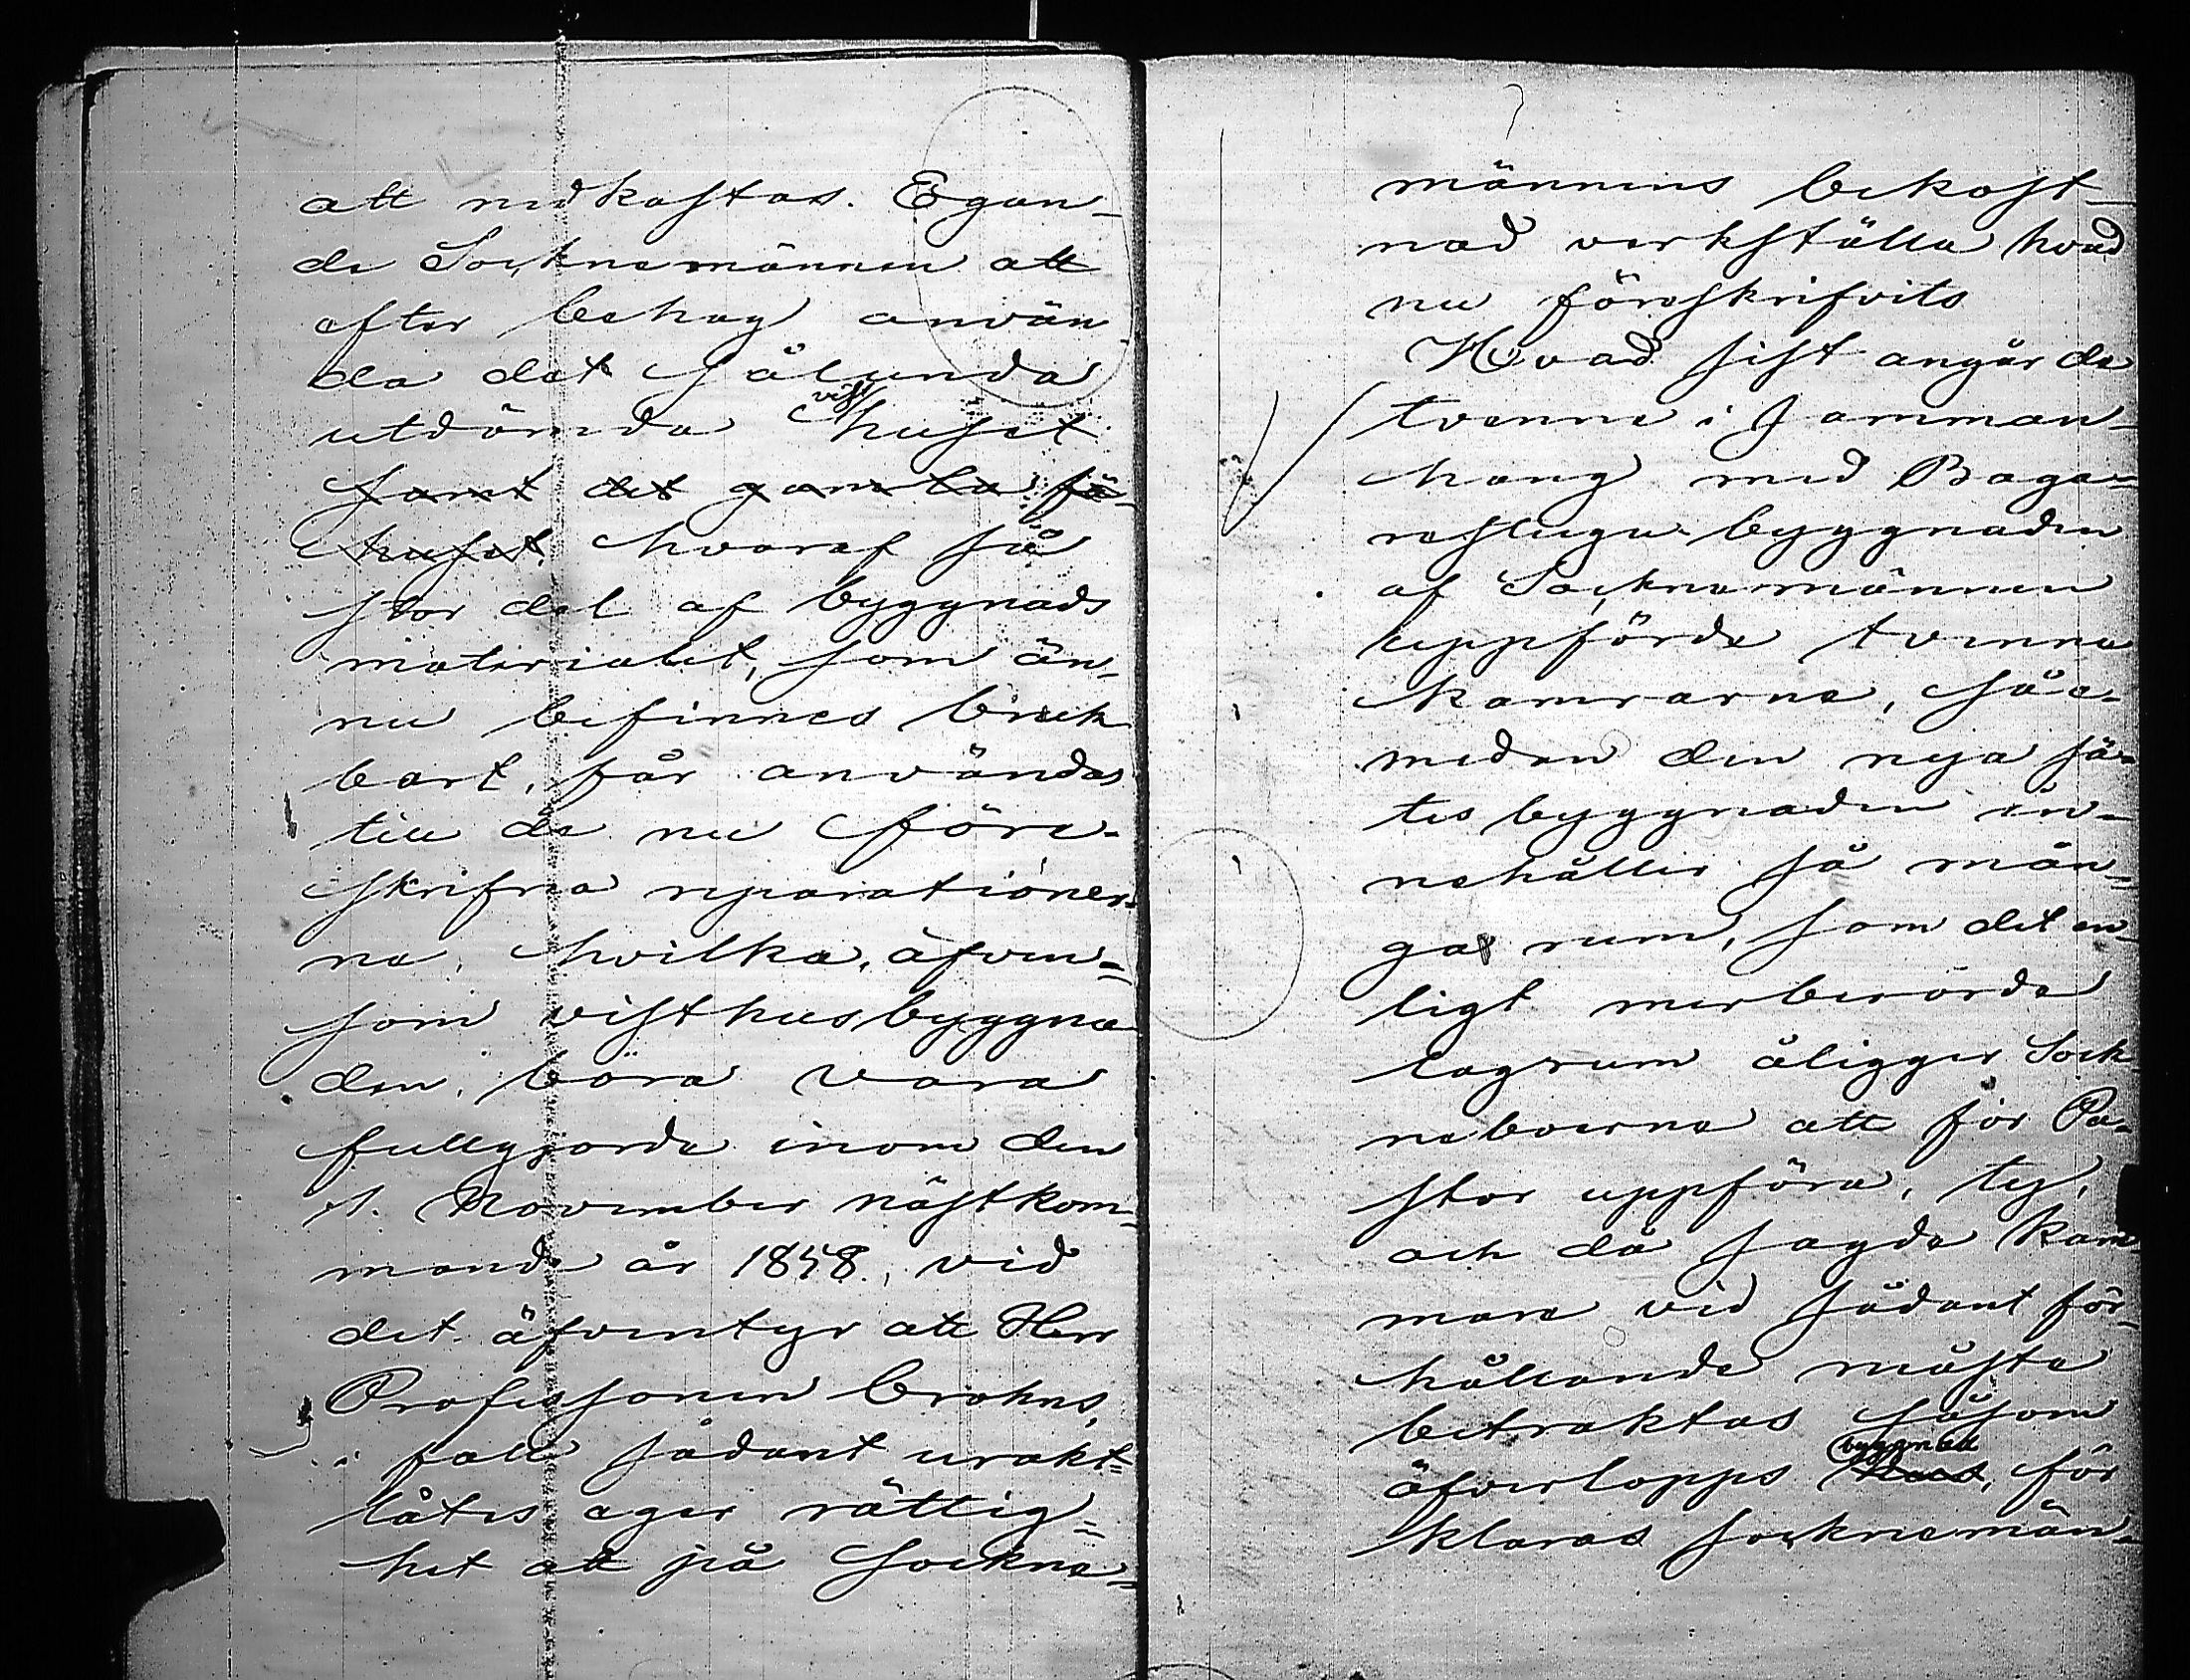 att nedkastas. Egan-
de Socknemännen att
efter behag använ
da det sålunda
utdömda visthuset
samt det gamla fä-
huset. hvaraf så
stor del af byggnads
materialet, som än-
nu befinnes bruk
bart, får användas
till de nu före-
skrifna reparationer-
na, hvilka, äfven-
som visthusbyggna
den, böra vara
fullgjorda inom den
1. November nästkom-
mande år 1858, vid
det äfventyr att Herr
Professoren Crohns,
i fall sådant urakt-
låtes eger rättig-
het att på sockne-
männens bekost-
nad verkställa hvad
nu föreskrifvits
Hvad sist angår de
tvenne i samman-
hang med Baga-
restugu byggnaden
af Socknemännen
uppförda tvenne
kamrarne, så e-
medan den nya sä-
tesbyggnaden in-
nehåller så mån-
ga rum, som det en-
ligt merberörda
lagrum åligger Sock
neboerne att för Pa-
stor uppföra, ty,
och då sagde kam
mare vid sådant för-
hållande måste
betraktas såsom
öfverlopps byggnad, för
klaras socknemän-